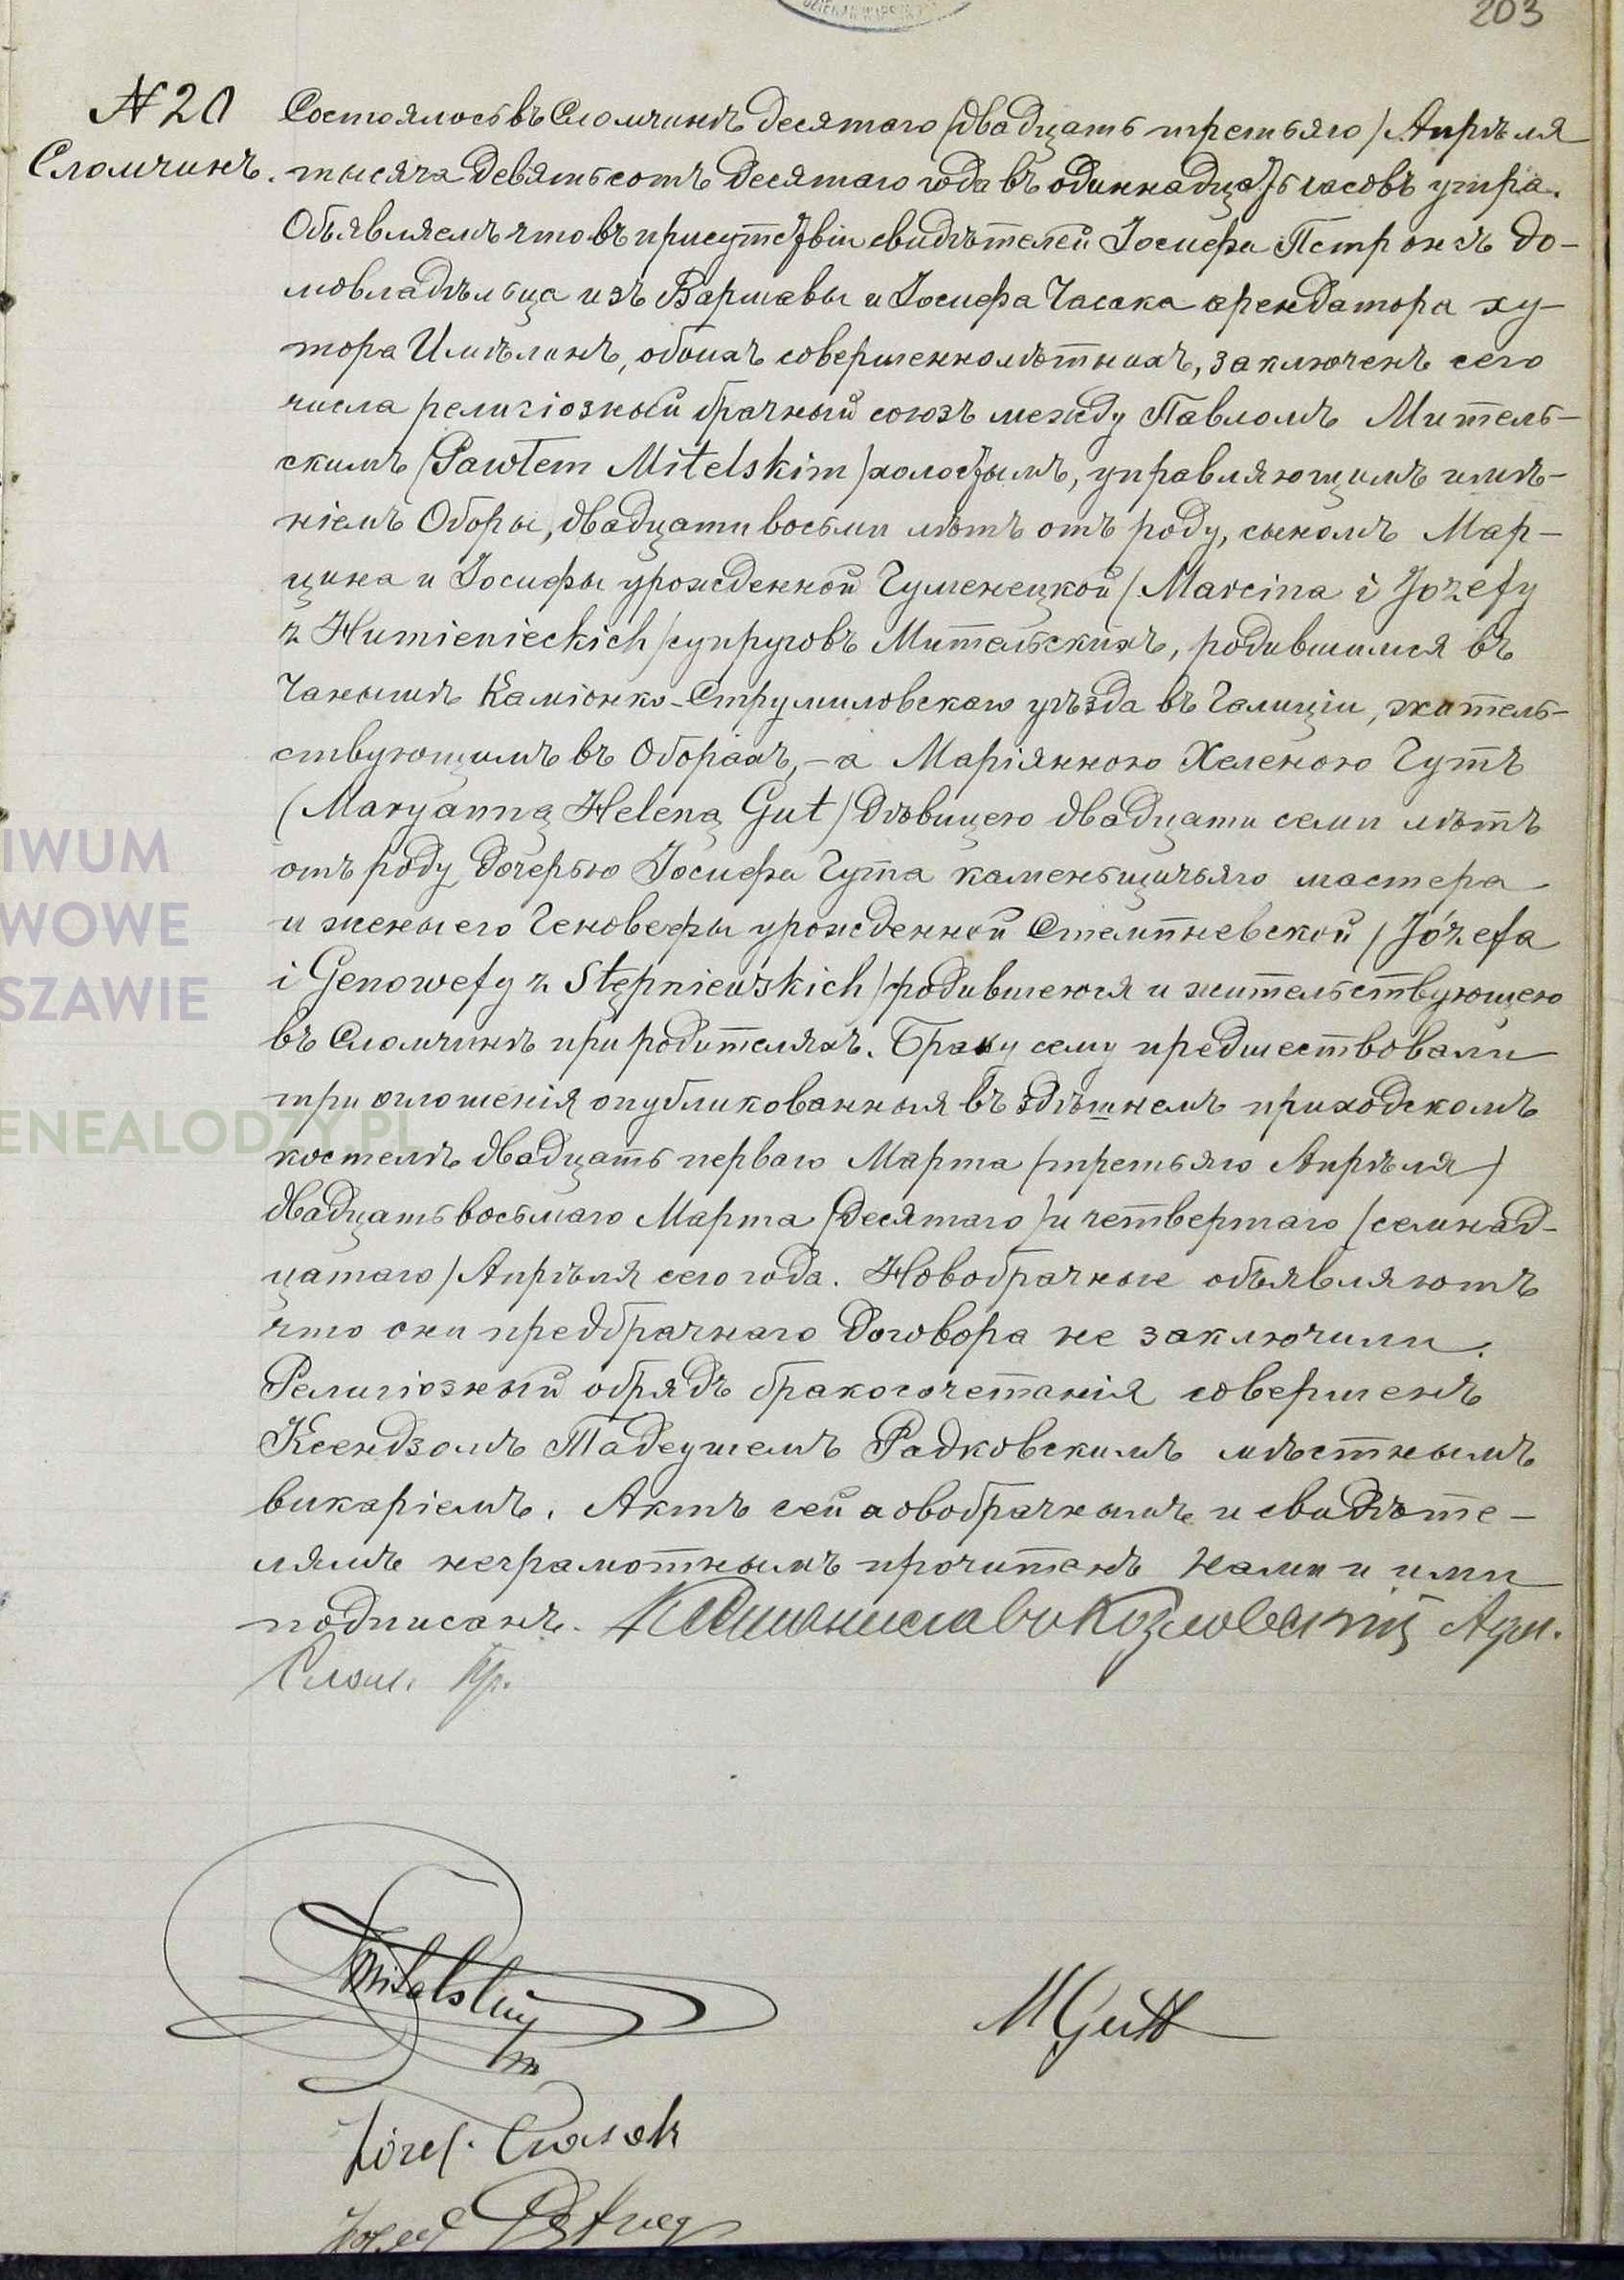 203
№ 20
Сломчинъ.
Состоялось въ Сломчинѣ десятаго /двадцать третьяго/ Апрѣля
тысяча девятьсотъ десятаго года въ одиннадцать часовъ утра.
Объявляемъ что въ присутствіи свидѣтелей Іосифа Пстронгъ до-
мовладѣльца изъ Варшавы и Іосифа Часака арендатора ху-
тора Имѣлинъ, обоихъ совершеннолѣтнихъ, заключенъ сего
числа религіозный брачный союзъ между Павломъ Митель-
скимъ /Pawłem Mitelskim/ холостымъ, управляющимъ имѣ-
ніемъ Оборы, двадцати восьми лѣтъ отъ роду, сыномъ Мар-
цина и Іосифы урожденной Гуменецкой /Marcina i Jozefy
z Humienieckich/ супруговъ Мительскихъ, родившимся въ
Чанышѣ Каміонко-Струмиловскаго уѣзда въ Галиціи, житель-
ствующимъ въ Оборахъ, - а Маріянною Хеленою Гутъ
(Maryanną Heleną Gut/ дѣвицею двадцати семи лѣтъ
отъ роду дочерью Іосифа Гута каменьщичьяго мастера
и жены его Геновефы урожденной Стемпневской /Józefa
i Genowefy z Stępniewskich/ родившеюся и жительствующею
въ Сломчинѣ при родителяхъ. Браку сему предшествовали
три оглошенія опубликованныя въ здѣшнемъ приходскомъ
костелѣ двадцать перваго Марта /третьяго Апрѣля/
двадцать восьмаго Марта /десятаго/ и четвертаго /семнад-
цатаго/ Апрѣля сего года. Новобрачные объявляютъ
что они предбрачнаго договора не заключили.
Религіозный обрядъ бракосочетанія совершенъ
Ксендзомъ Тадеушемъ Радковскимъ мѣстнымъ
викаріемъ. Актъ сей новобрачнымъ и свидѣте-
лямъ неграмотнымъ прочитанъ нами и ими
подписанъ. Козловскій Адм.
Слом. Пр.
Mitelski
M Gutt
Józef Czasak
Józef Pstrąg
IWUM
WOWE
SZAWIE
ENEALODZY.PL